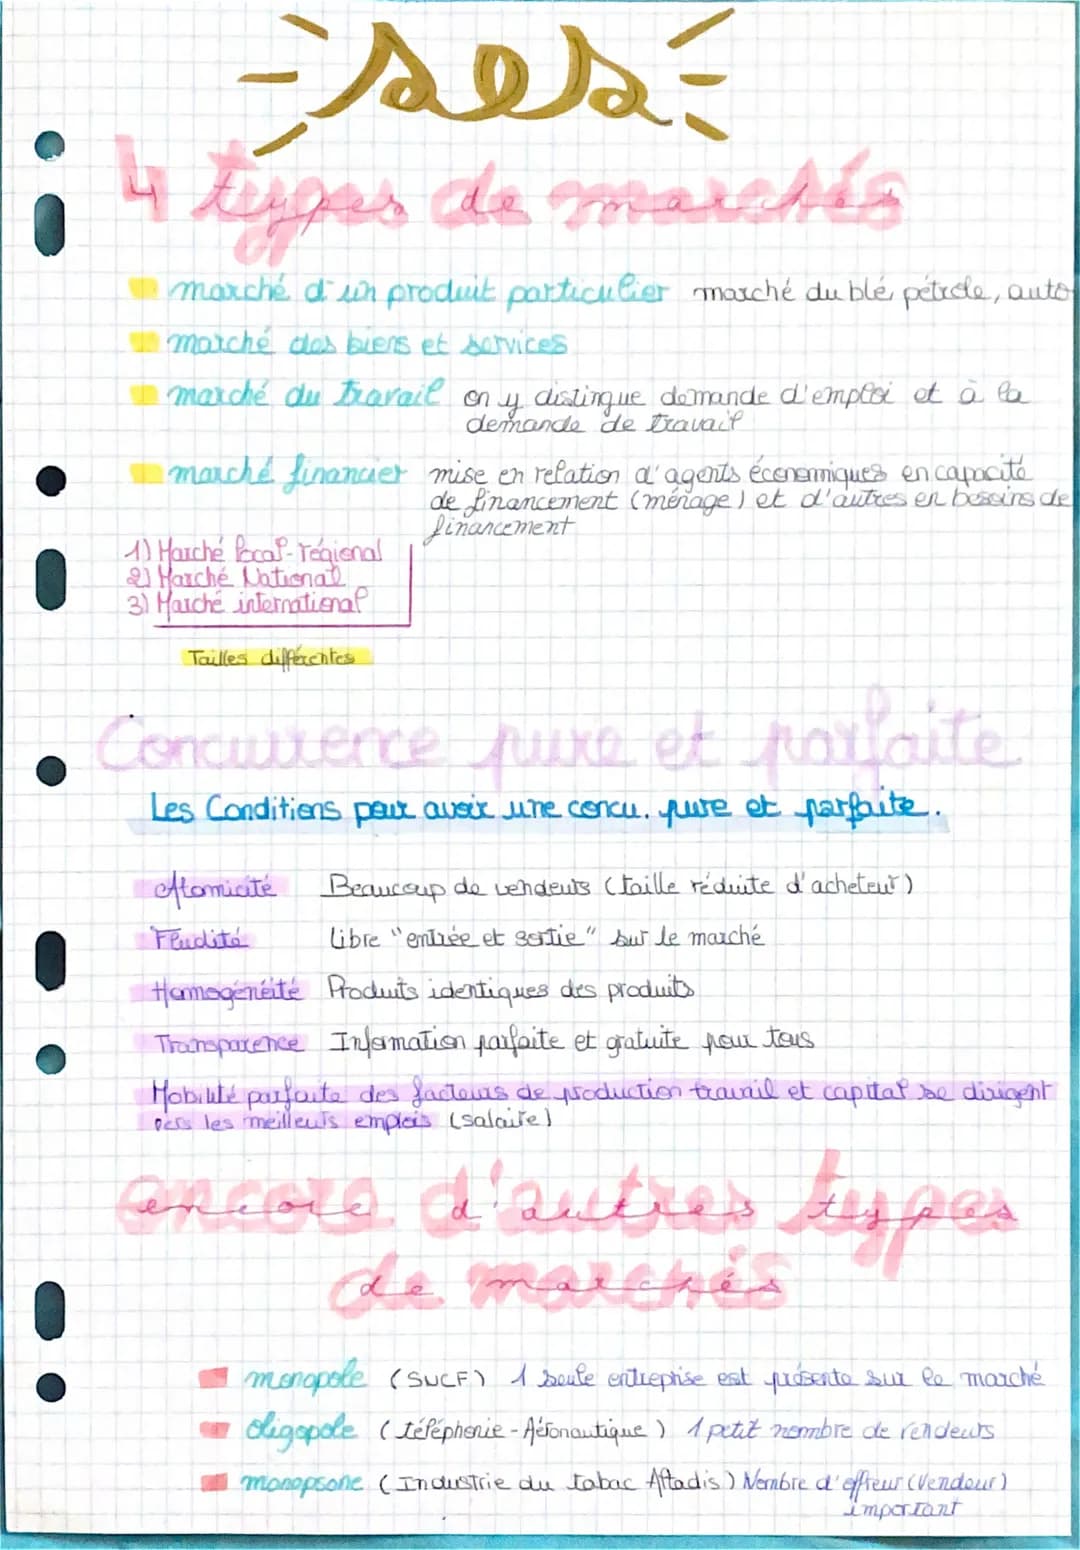 ses
4 types de marchés
marché d'un produit particulier marché du blé, pétrole, auto
marché des biens et services
marché du travail on y distingue demande d'emploi et à la
demande de travail
marché financier mise en relation d'agents économiques en capacité
de financement (ménage) et d'autres en besoins de
financement
1) Marché local-régional
2) Marché National
3) Marché international
Tailles différentes
Concurrence pure et parfaite
Les Conditions pour avoir une concu. pure et parfaite.
Atomicité Beaucoup de vendeurs (taille réduite d'acheteur)
Fluidité Libre "entrée et sortie" sur le marché
Homogénéité Produits identiques des produits
Transparence Information parfaite et gratuite pour tous
Mobilité parfaite des facteurs de production travail et capital se dirigent
vers les meilleurs emplois (salaire)
encore d'autres types
de marchés
monopole (SNCF) 1 seule entreprise est présente sur le marché
oligopole (téléphonie - Aéronautique) 1 petit nombre de vendeurs
monopsone (Industrie du tabac Altadis) Nombre d'offreur (Vendeur)
important